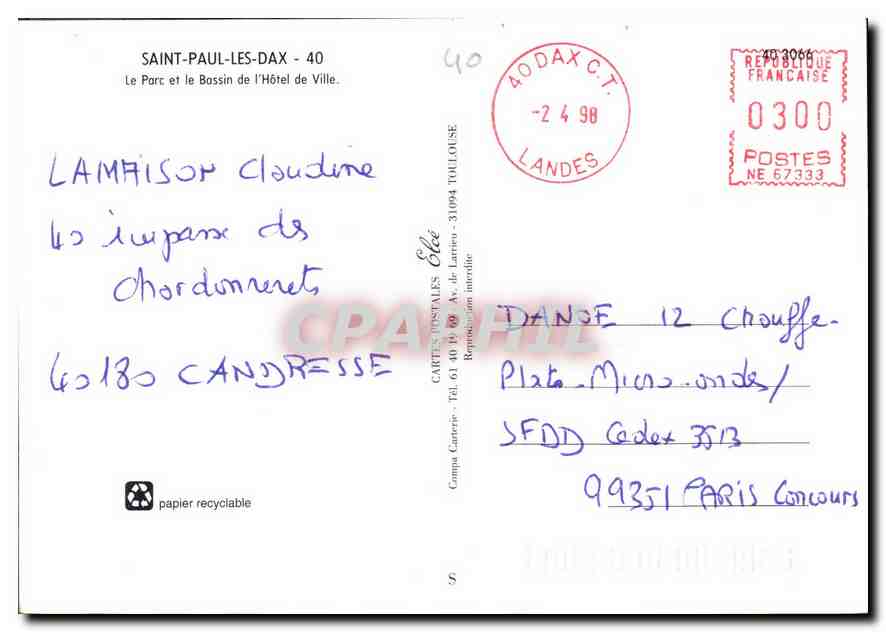 SAINT-PAUL-LES-DAX - 40
Le Parc et le Bassin de l'Hôtel de Ville.
40
40 DAX C.T.
-2 4 98
LANDES
40 3066
REPUBLIQUE
FRANCAISE
0300
POSTES
NE 67333
LAMAISON Claudine
40 impasse des
Chardonnerets
40180 CANDRESSE
papier recyclable
CARTES POSTALES Eloé
Compa Carterie - Tél. 61 40 19 69 - Av. de Larrieu - 31094 TOULOUSE
Reproduction interdite
S
CPARAMA
DANOE 12 Chauffe-
Plats-Micro-ondes/
SFDD Cedex 3513
99351 PARIS Concours